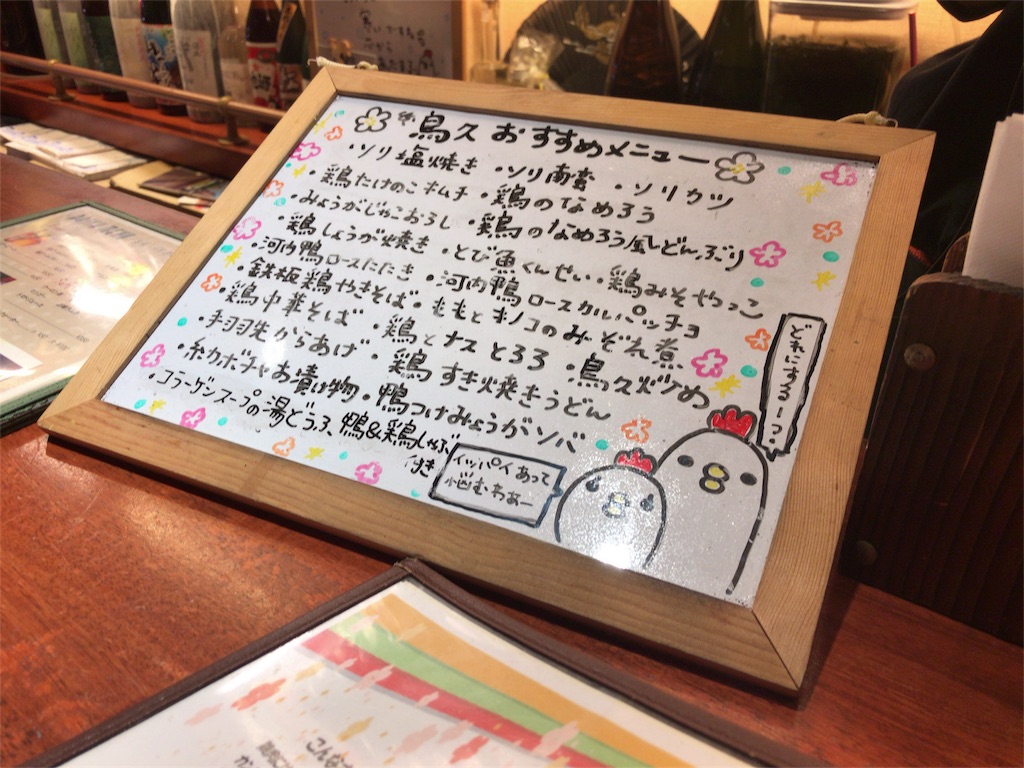 鳥久 おすすめメニュー
・ソリ塩焼き ・ソリ南蛮 ・ソリカツ
・鶏たけのこキムチ ・鶏のなめろう
・みょうがじゃこおろし ・鶏のなめろう風どんぶり
・鶏しょうが焼き ・とび魚くんせい ・鶏みそやっこ
・河内鴨ロースたたき ・河内鴨ロースカルパッチョ
・鉄板鶏やきそば ・ももとキノコのみぞれ煮
・鶏中華そば ・鶏とナスとろろ ・鳥久炊〆め
・手羽先からあげ ・鶏すき焼きうどん
・糸カボチャお漬け物 ・鴨つけみょうがソバ
・コラーゲンスープの湯どうふ、鴨&鶏しゃぶ
付き
どれにするーっ?
イッパイあって
悩むわぁー
こんな